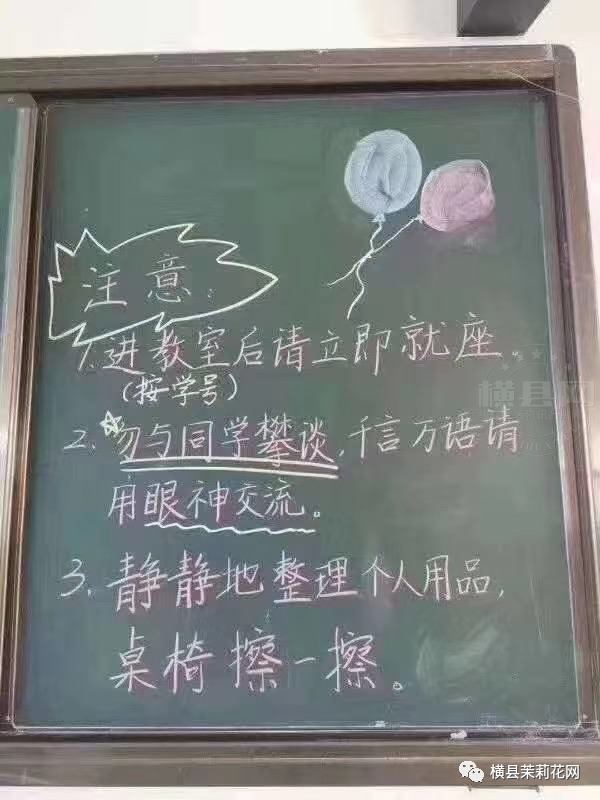 注意:
1.进教室后请立即就座。
(按学号)
2.勿与同学攀谈,千言万语请
用眼神交流。
3.静静地整理个人用品,
桌椅擦一擦。
横县网
横县茉莉花网